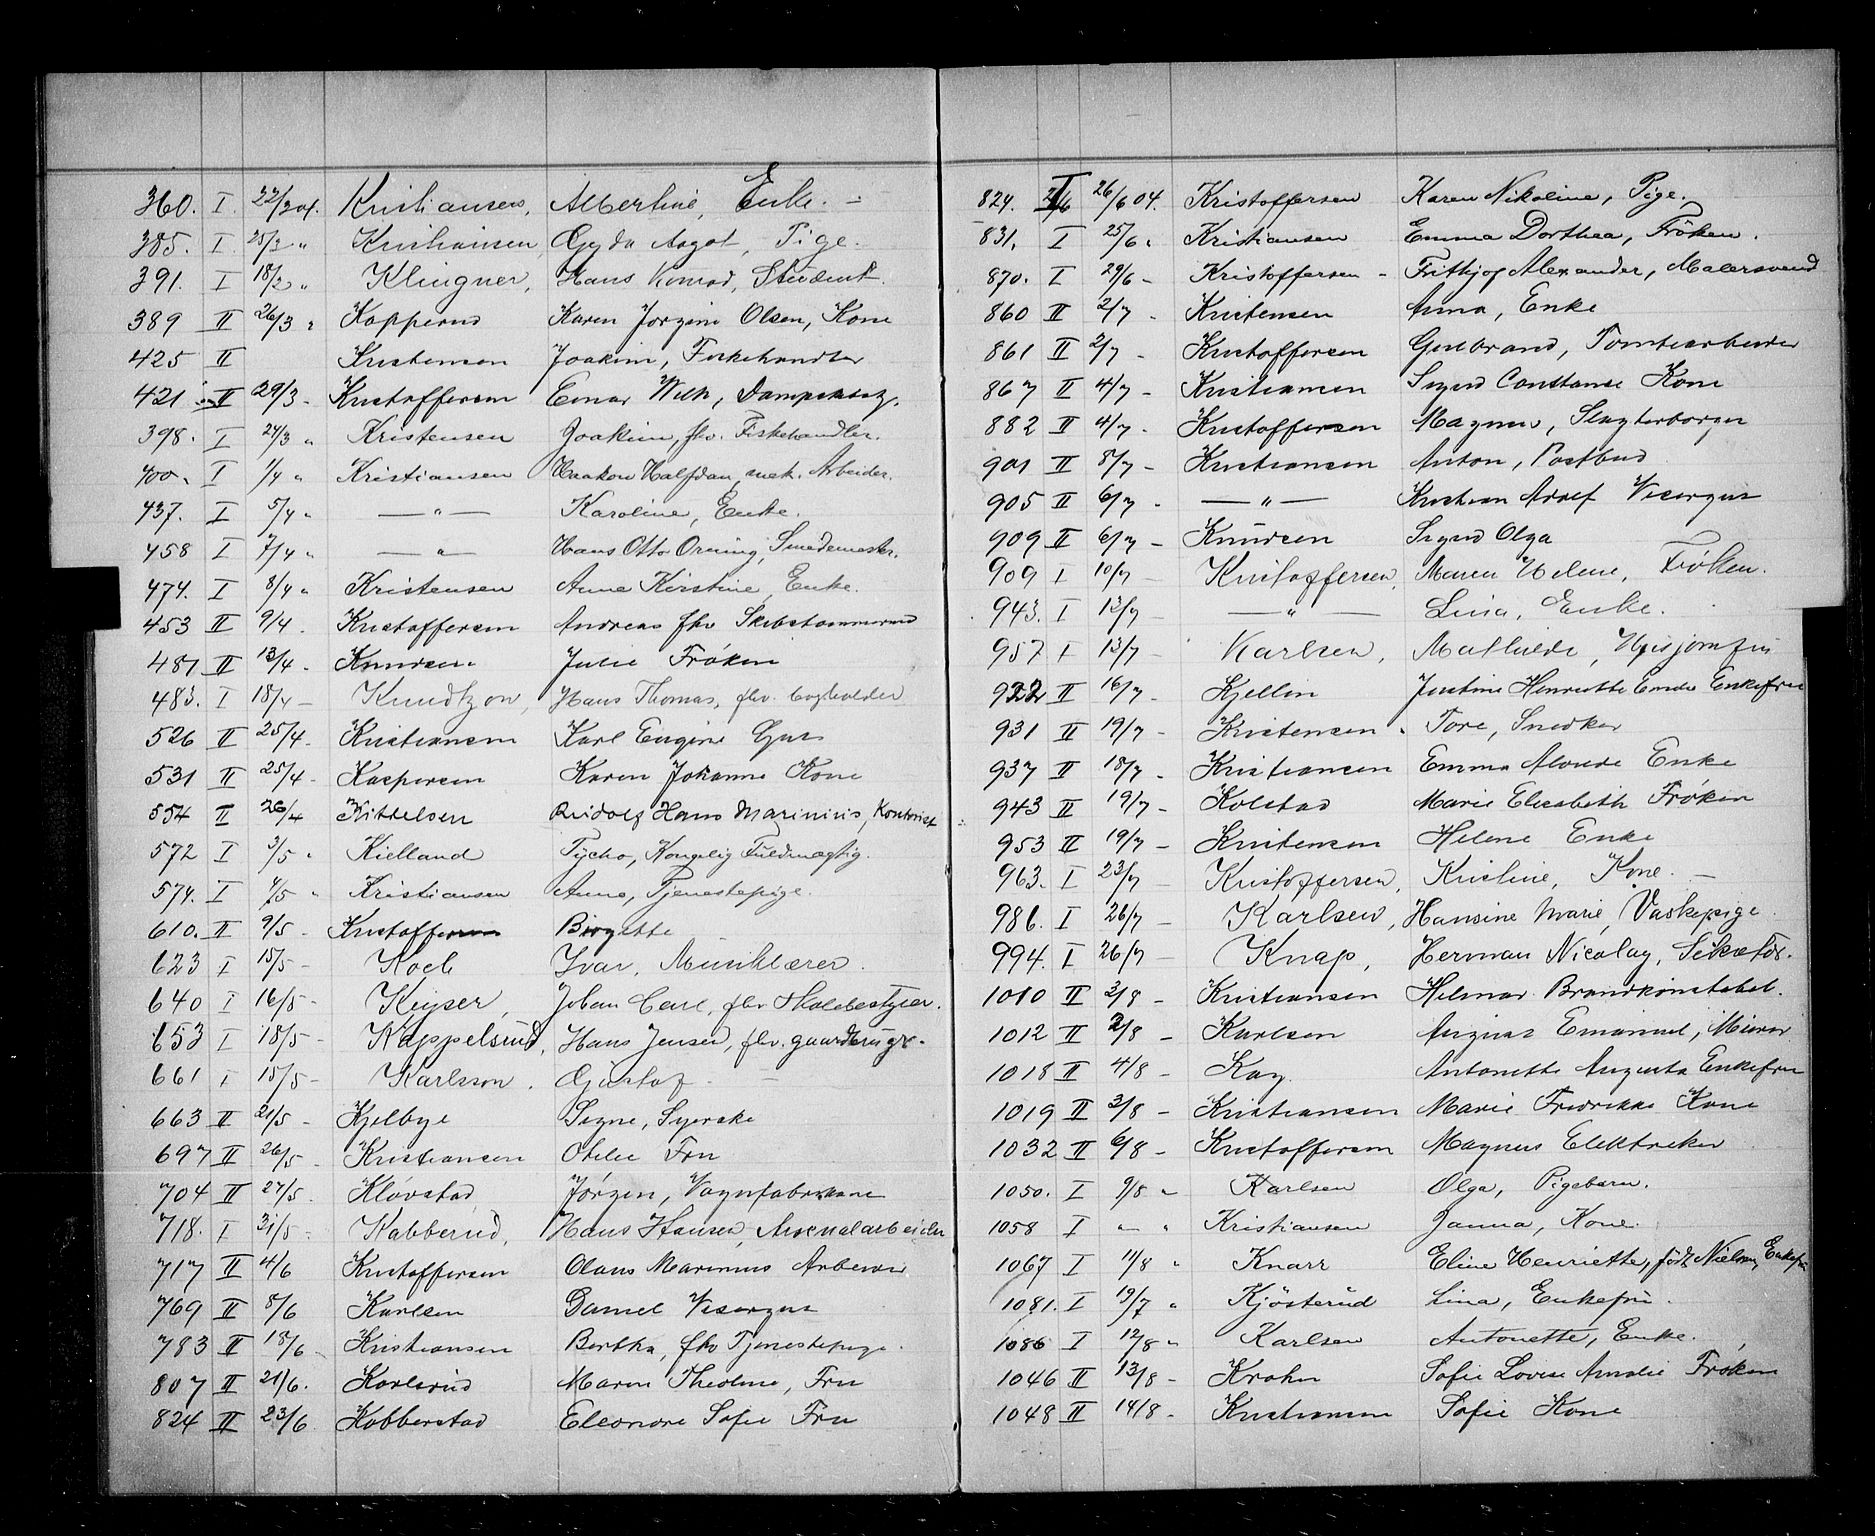 360. I. 22/3 04. Kristiansen, Albertine, Enke. –
385. I. 25/3 " Kristiansen, Gyda Aagot, Pige.
391. I 18/3 " Klingner, Hans Konrad, Student.
389 II 26/3 " Kopperud Karen Jorgine Olsen, Kone
425 II Kristensen Joakim, Fiskehandler
421 II 29/3 - Kristoffersen Einar Wilh,
398. I 24/3 " Kristensen Joakim, fhv. Fiskehandler.
400. I 1/4 " Kristiansen Haakon Halfdan, mek. Arbeider.
437. I 5/4 " — " — Karoline, Enke.
458 I 7/4 " — " — Hans Otto Orning, Smedemester.
474. I 8/4 " Kristensen Anne Kirstine, Enke.
453 II 9/4 . Kristoffersen Andreas fhv Skibstømmermd
481 II 13/4 . Knudsen Julie Frøken
483. I 18/4 – Knudtzon, Hans Thomas, fhv. bogholder
526 II 25/4 - Kristiansen Karl Eugine Gut
531 II 25/4 - Kaspersen Karen Johanne Kone
554 II 26/4 Kittelsen Rudolf Hans Marinius, Kontorist
572 I 3/5 " Kielland Tycho, Kongelig Fuldmægtig.
574. I 4/5 " Kristiansen Anne, Tjenestepige.
610. II 9/5 - Kristoffersen Birgitte
623 I 15/5 - Koch Ivar, Musiklærer.
640 I 16/5 - Keyser, Johan Carl, fhv Skolebestyrer.
653 I 18/5 - Kappelsrud, Hans Jensen, fhv. gaardbruger.
661 I 15/5 - Karlsson. Gustaf. –
663 II 21/5 . Kjelbye Signe, Syerske
697 II 26/5 . Kristiansen Otelie Fru
704 II 27/5 . Kløvstad Jørgen, Vognfabrikant
718. I 31/5 - Kabberud, Hans Hansen, Arsenalarbeider
717 II 4/6 Kristoffersen Olaus Marinius Arbeider
769 II 8/6 Karlsen Daniel Visergut
783 II 18/6 - Kristiansen Bertha, fhv Tjenestepige.
807 II 21/6. Karlsrud Maren Theoline, Fru
824 II 23/6 Kobberstad Eleonore Sofie Fru
824. I 26/6 04. Kristoffersen Karen Nikoline, Pige.
831. I 25/6 " Kristiansen Emma Dorthea, Frøken.
870. I 29/6 - Kristoffersen - Fritkjof Alexander, Malersvend
860 II 2/7 . Kristensen Anna, Enke
861 II 2/7 - Kristoffersen Gulbrand, Tomtearbeider
867 II 4/7 - Kristiansen Sigrid Constanse Kone
882 II 4/7 . Kristoffersen Magnus, Slagterborger
901 II 8/7 - Kristiansen Anton, Postbud
905 II 6/7 . — " — Kristian Adolf Visergut
909 II 6/7 - Knudsen Sigrid Olga
909 I 10/7 – Kristoffersen, Maren Helene, Frøken.
943. I 13/7 — " — Lina, Enke.
957 I 13/7 – Karlsen, Mathilde, Husjomfru
922 II 16/7 . Kjellin Justine Henriette Emelie Enkefru
931 II 19/7 - Kristensen . Tore, Snedker
937 II 18/7 . Kristiansen Emma Alvilde Enke
943 II 19/7 - Kolstad Marie Elisabeth Frøken
953 II 19/7 - Kristensen Helene Enke
963. I 23/7 – Kristoffersen, Kristine, Kone. –
986. I 26/7 – Karlsen, Hansine Marie, Vaskepige.
994. I 26/7 – Knap, Herman Nicolay, Sekretær.
1010 II 3/8 - Kristiansen Hilmar Brandkonstabel.
1012 II 2/8 - Karlsen August Emanuel, Murer
1018 II 4/8 - Kay Antonette Augusta Enkefru
1019 II 3/8 - Kristiansen Marie Fredrikke Kone
1032 II 6/8 - Kristoffersen Magnus Elektriker
1050. I 9/8 " Karlsen Olga, Pigebarn.
1058 I " " Kristiansen Janna, Kone.
1067 I 11/8 " Knarr Eline Henriette, født Nielsen, Enkefru
1081. I 19/7 " Kjøsterud Lina, Enkefru.
1086 I 12/8 " Karlsen Antonette, Enke.
1046 II 13/8 - Krohn Sofie Lovise Amalie Frøken
1048 II 14/8 - Kristiansen Sofie Kone